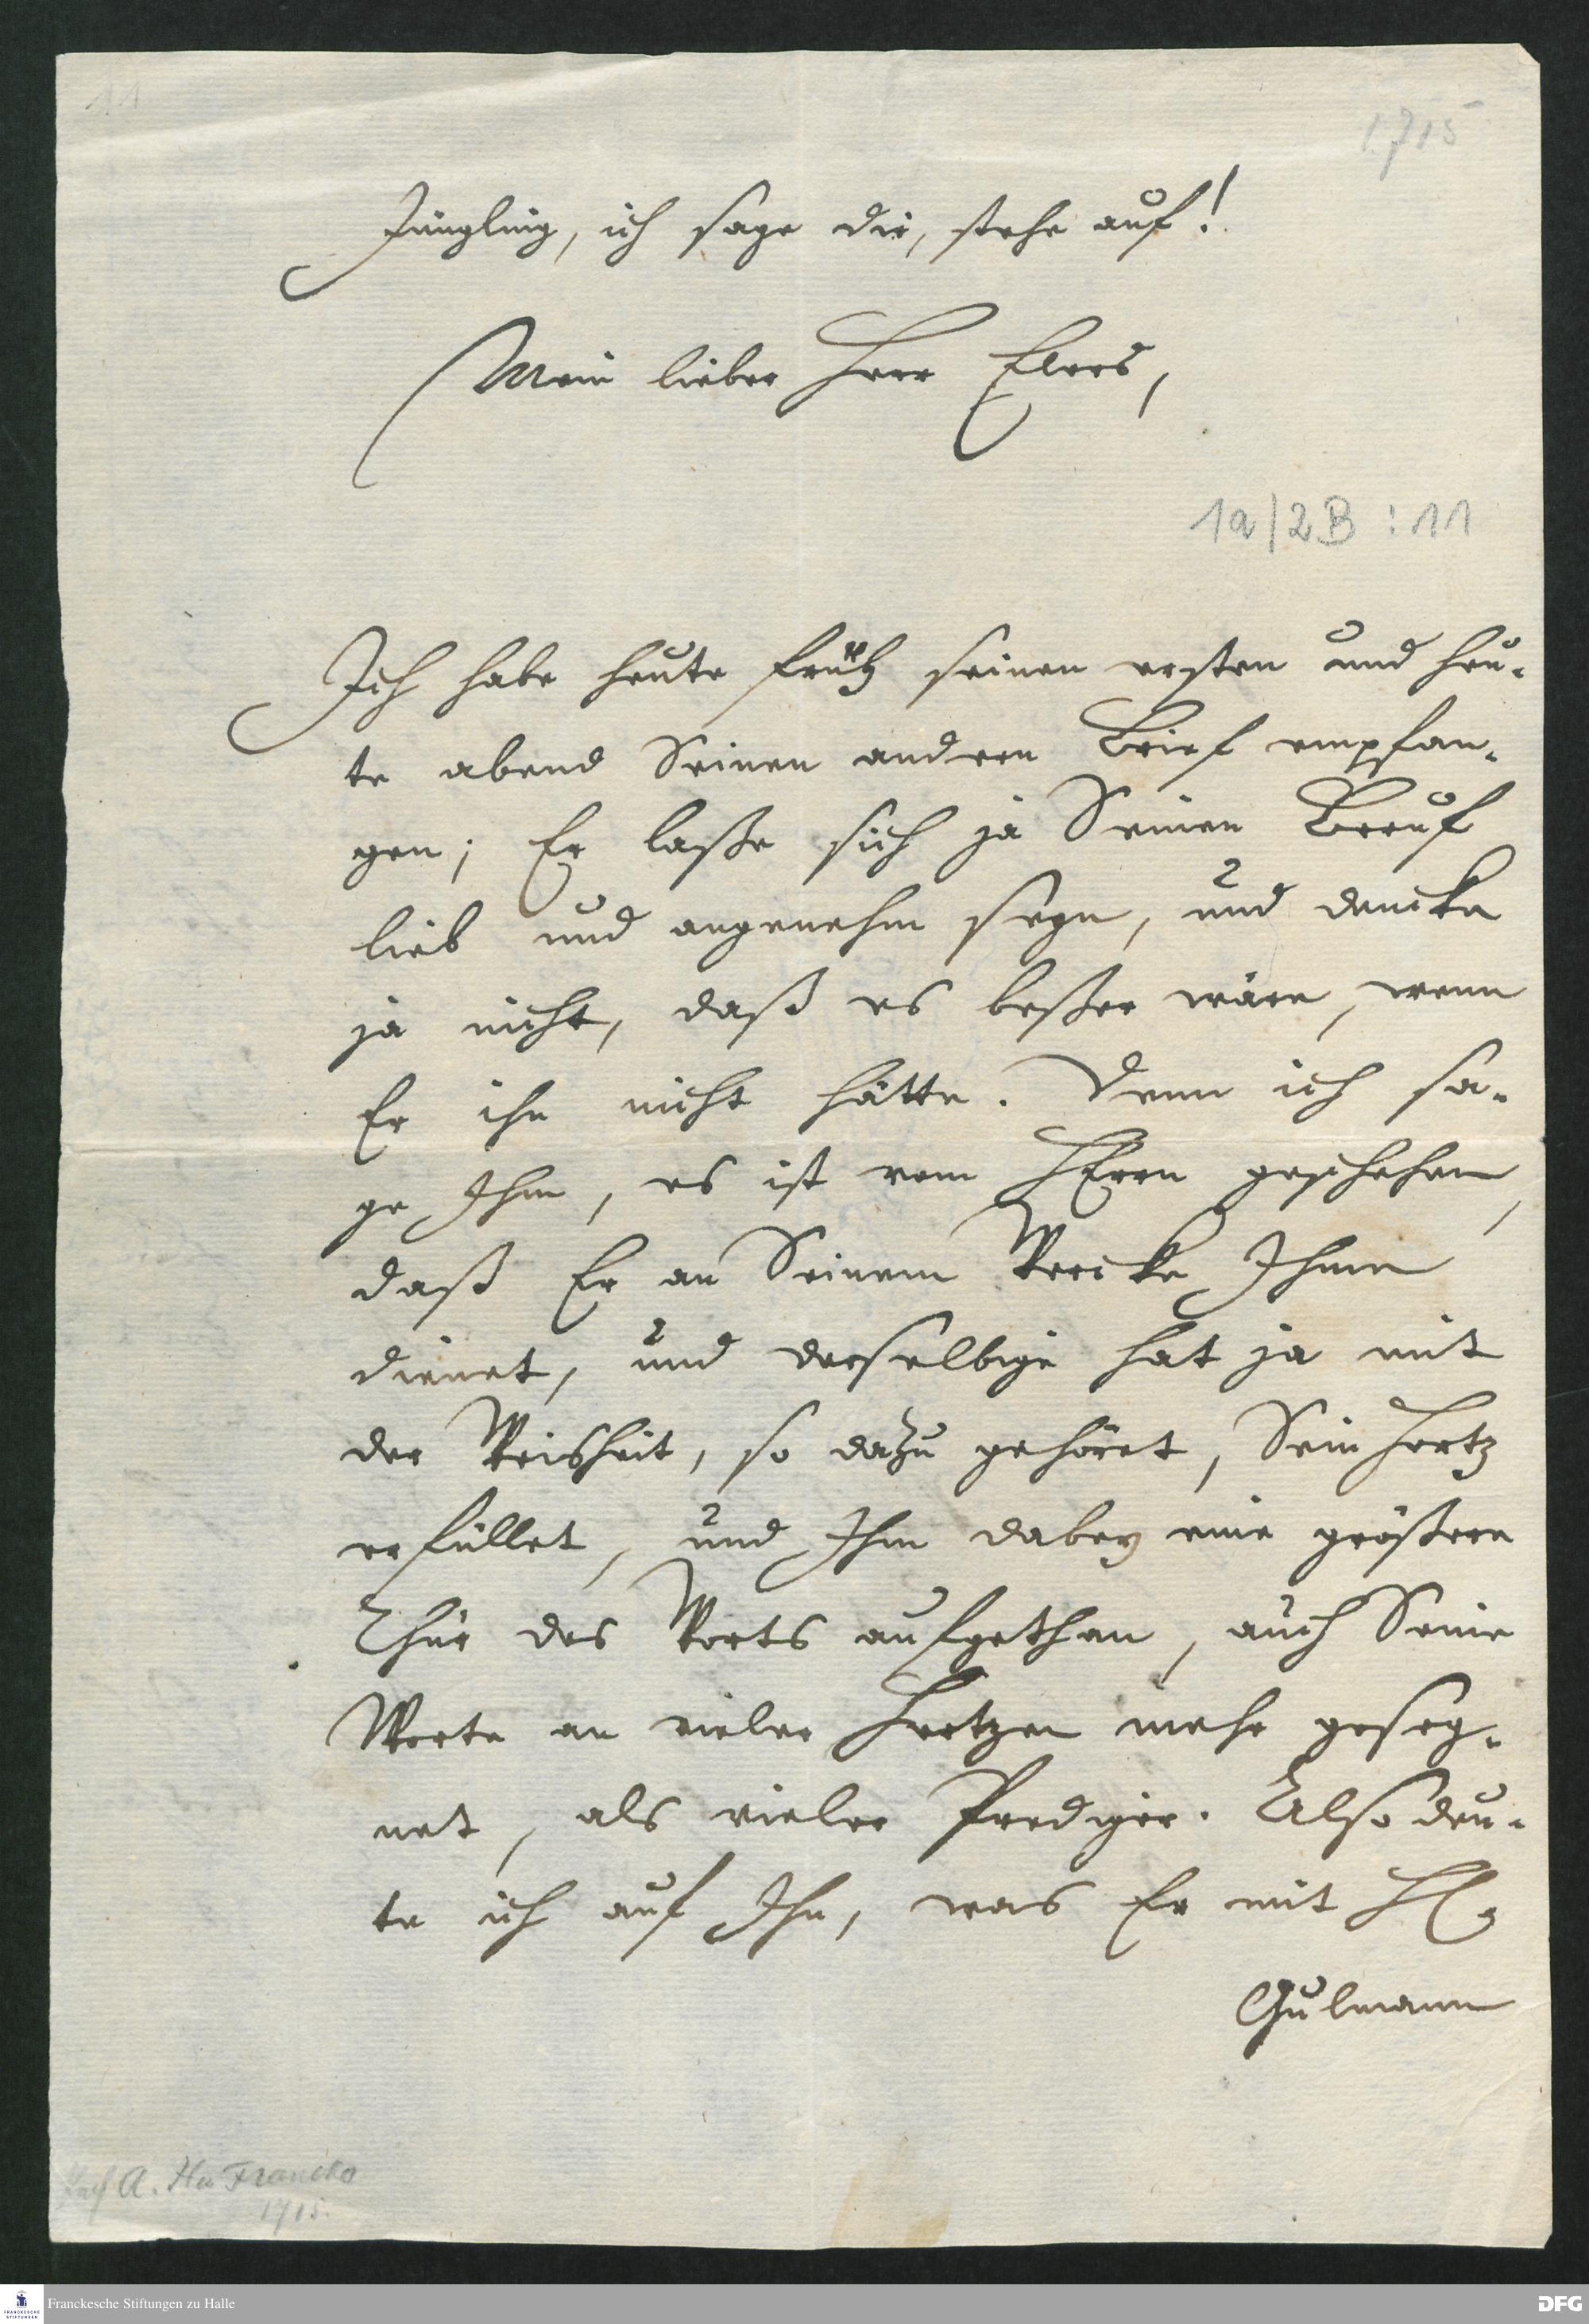 11
1715
Jüngling, ich sage dir, stehe auf!
Mein lieber Herr Elers,
1a/2B : 11
Ich habe heute früh seinen ersten und heu-
te abend Seinen andern Brief empfan-
gen; Er laße sich ja Seinen Beruf
lieb und angenehm seyn, und dencke
ja nicht, daß es beßer wäre, wenn
Er ihn nicht hätte. Denn ich sa-
ge Ihm, es ist vom HErrn geschehen,
daß Er an Seinem Wercke Ihme
dienet, und derselbige hat ja mit
der Weisheit, so dazu gehöret, Sein Hertz
erfüllet, und Ihm dabey eine größere
Thür des Worts aufgethan, auch Seine
Worte an vieler Hertzen mehr geseg-
net, als vieler Prediger. Also deu-
te ich auf Ihn, was Er mit H.
Gulmann
A. H. Francke
1715.
Franckesche Stiftungen zu Halle
FRANCKESCHE STIFTUNGEN
DFG